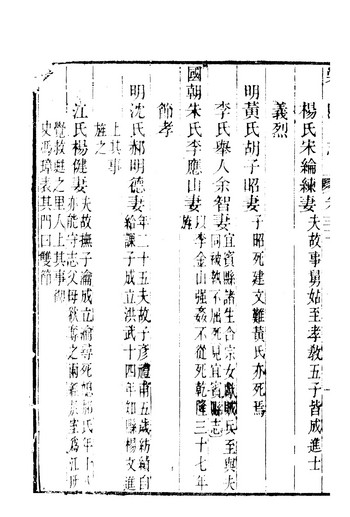 楊氏宋綸練妻夫故事舅姑至孝教五子皆成進士
義烈
明黃氏胡子昭妻子昭死建文難黃氏亦死焉
李氏舉人余智妻宜賓縣諸生合宗女獻賊兵至與夫
同被執不屈死見宜賓縣志
國朝朱氏李應山妻以李金山強姦不從死乾隆三十七年
旌
節孝
明沈氏郝明德妻年二十五夫故子彥禮甫五歲紡績自
給課子成立洪武十四年知縣楊文進
上其事
旌之
江氏楊健妻夫故撫子瀹成立瀹尋死媳楊氏年十
亦能守志父母欲奪之經於室爲江所
覺救甦之里人上其事御
史馮璋表其門曰雙節